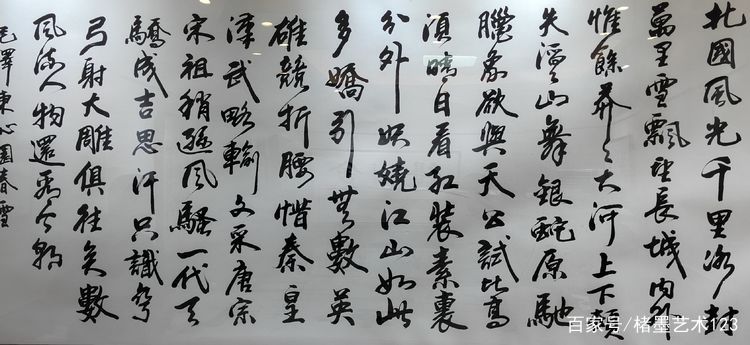 北國風光千里冰封
萬里雪飄望長城内外
惟餘莽々大河上下頓
失滔々山舞銀蛇原馳
臘象欲與天公試比高
須晴日看紅裝素裹
分外妖嬈江山如此
多嬌引無數英
雄競折腰惜秦皇
漢武略輸文采唐宗
宋祖稍遜風騷一代天
驕成吉思汗只識彎
弓射大雕俱往矣數
風流人物還看今朝
毛澤東沁園春雪
百家号/楮墨艺术123